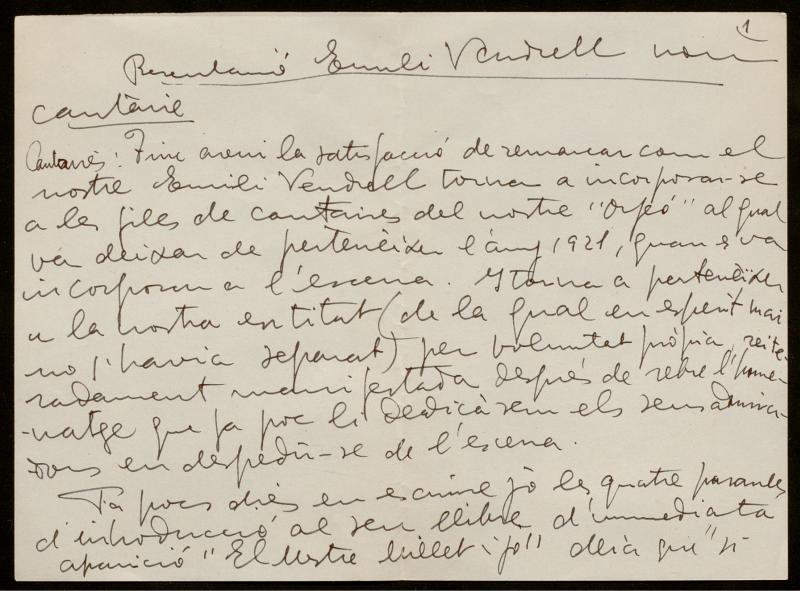 1
Presentació Emili Vendrell nou
cantaire
Cantaires: Tinc avui la satisfacció de remarcar com el
nostre Emili Vendrell torna a incorporar-se
a les files de cantaires del nostre "Orfeó" al qual
va deixar de pertenèixer l'any 1921, quan es va
incorporar a l'escena. I torna a pertenèixer
a la nostra entitat (de la qual en esperit mai
no s'havia separat) per voluntat pròpia, reite-
radament manifestada després de rebre l'home-
natge que fa poc li dedicàrem els seus admira-
dors en despedir-se de l'escena.
Fa pocs dies en escriure jo les quatre paraules
d'introducció al seu llibre d'immediata
aparició "El Mestre Millet i jo" deia que "si